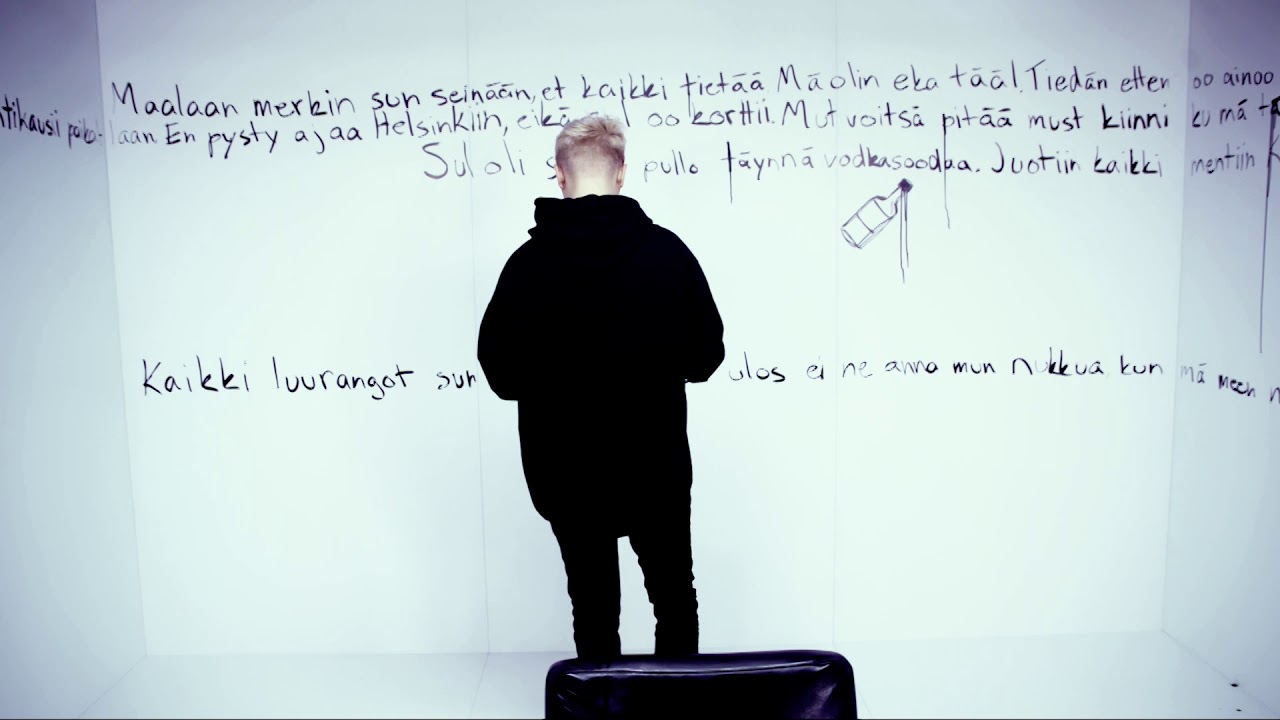 Maalaan merkin sun seinään, et kaikki tietää Mä olin eka tääl. Tiedän etten oo ainoo
ntikausi laan En pysty ajaa Helsinkiin, eikä oo korttii. Mut voitsä pitää must kiinni ku mä
Sul oli pullo täynnä vodkasoodaa. Juotiin kaikki mentiin
Kaikki luurangot sun ulos ei ne anna mun nukkua kun mä meen